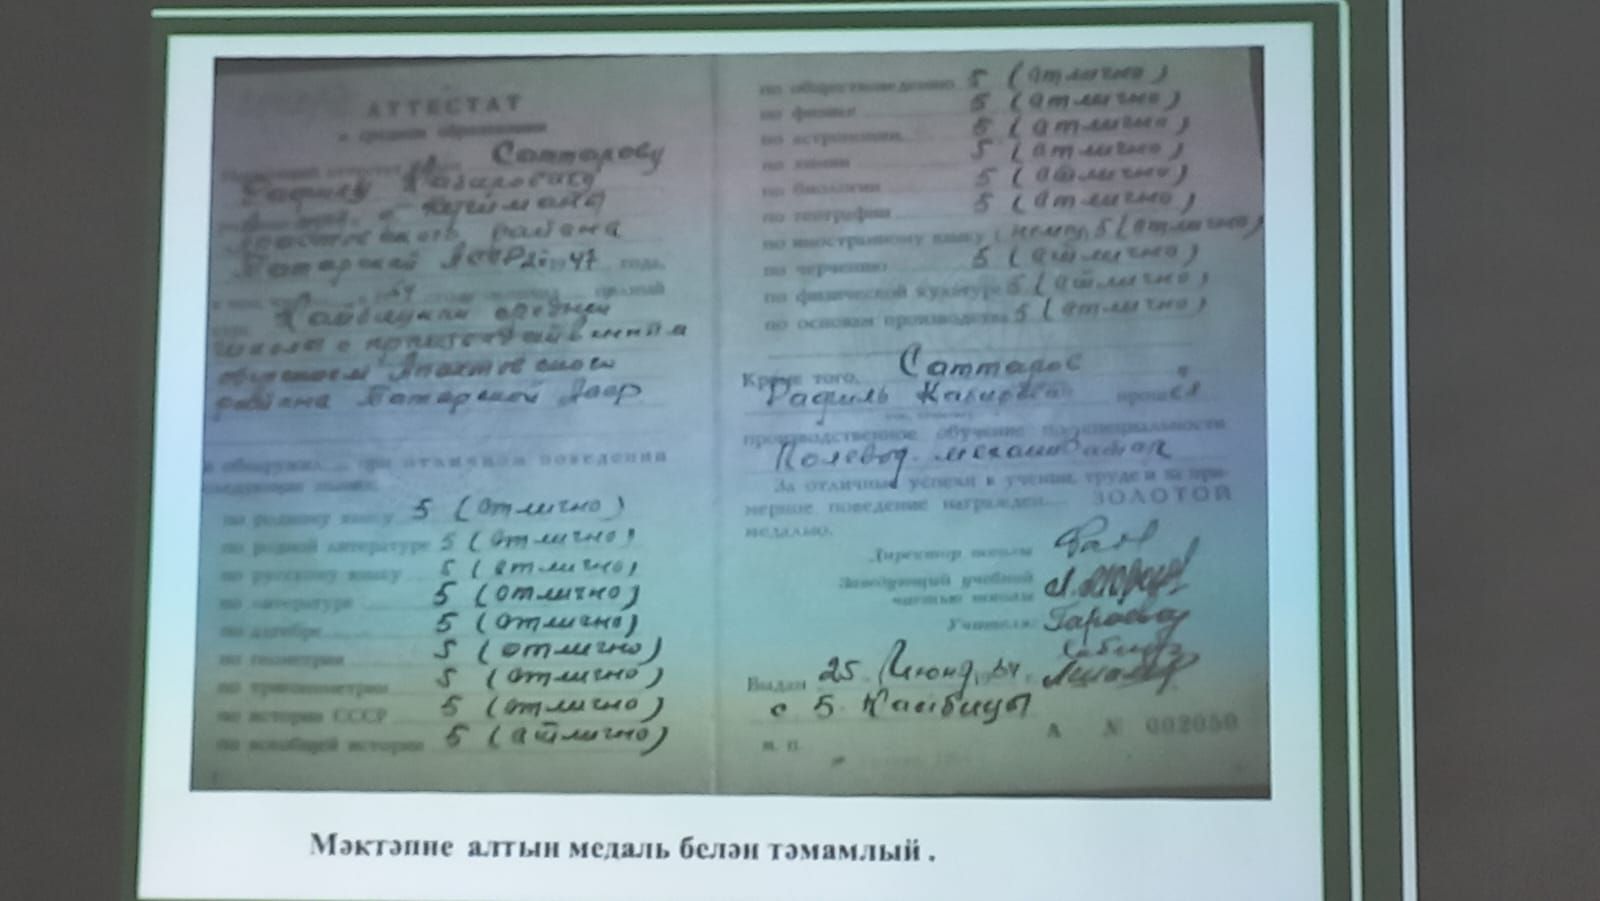 АТТЕСТАТ
о среднем образовании
Саттарову
района
Татарской АССР 47 года,
Кайбицкой средней
школы с производственным
обучением Апастовского
района Татарской АССР
при отличном поведении
следующие знания:
по родному языку 5 (отлично)
по родной литературе 5 (отлично)
по русскому языку 5 (отлично)
по литературе 5 (отлично)
по алгебре 5 (отлично)
по геометрии 5 (отлично)
по тригонометрии 5 (отлично)
по истории СССР 5 (отлично)
по всеобщей истории 5 (отлично)
по обществоведению 5 (отлично)
по физике 5 (отлично)
по астрономии 5 (отлично)
по химии 5 (отлично)
по биологии 5 (отлично)
по географии 5 (отлично)
по иностранному языку 5 (отлично)
по черчению 5 (отлично)
по физической культуре 5 (отлично)
по основам производства 5 (отлично)
Кроме того, Саттаров
Кабирович прошел
производственное обучение по специальности
Полевод-механизатор
За отличные успехи в учении, труде и за при-
мерное поведение награжден ЗОЛОТОЙ
медалью.
Директор школы
Заведующий учебной
частью школы
Учителя:
Выдан 25 июня 1964 г.
с Б. Кайбицы
А № 002050
м. п.
Мәктәпне алтын медаль белән тәмамлый .